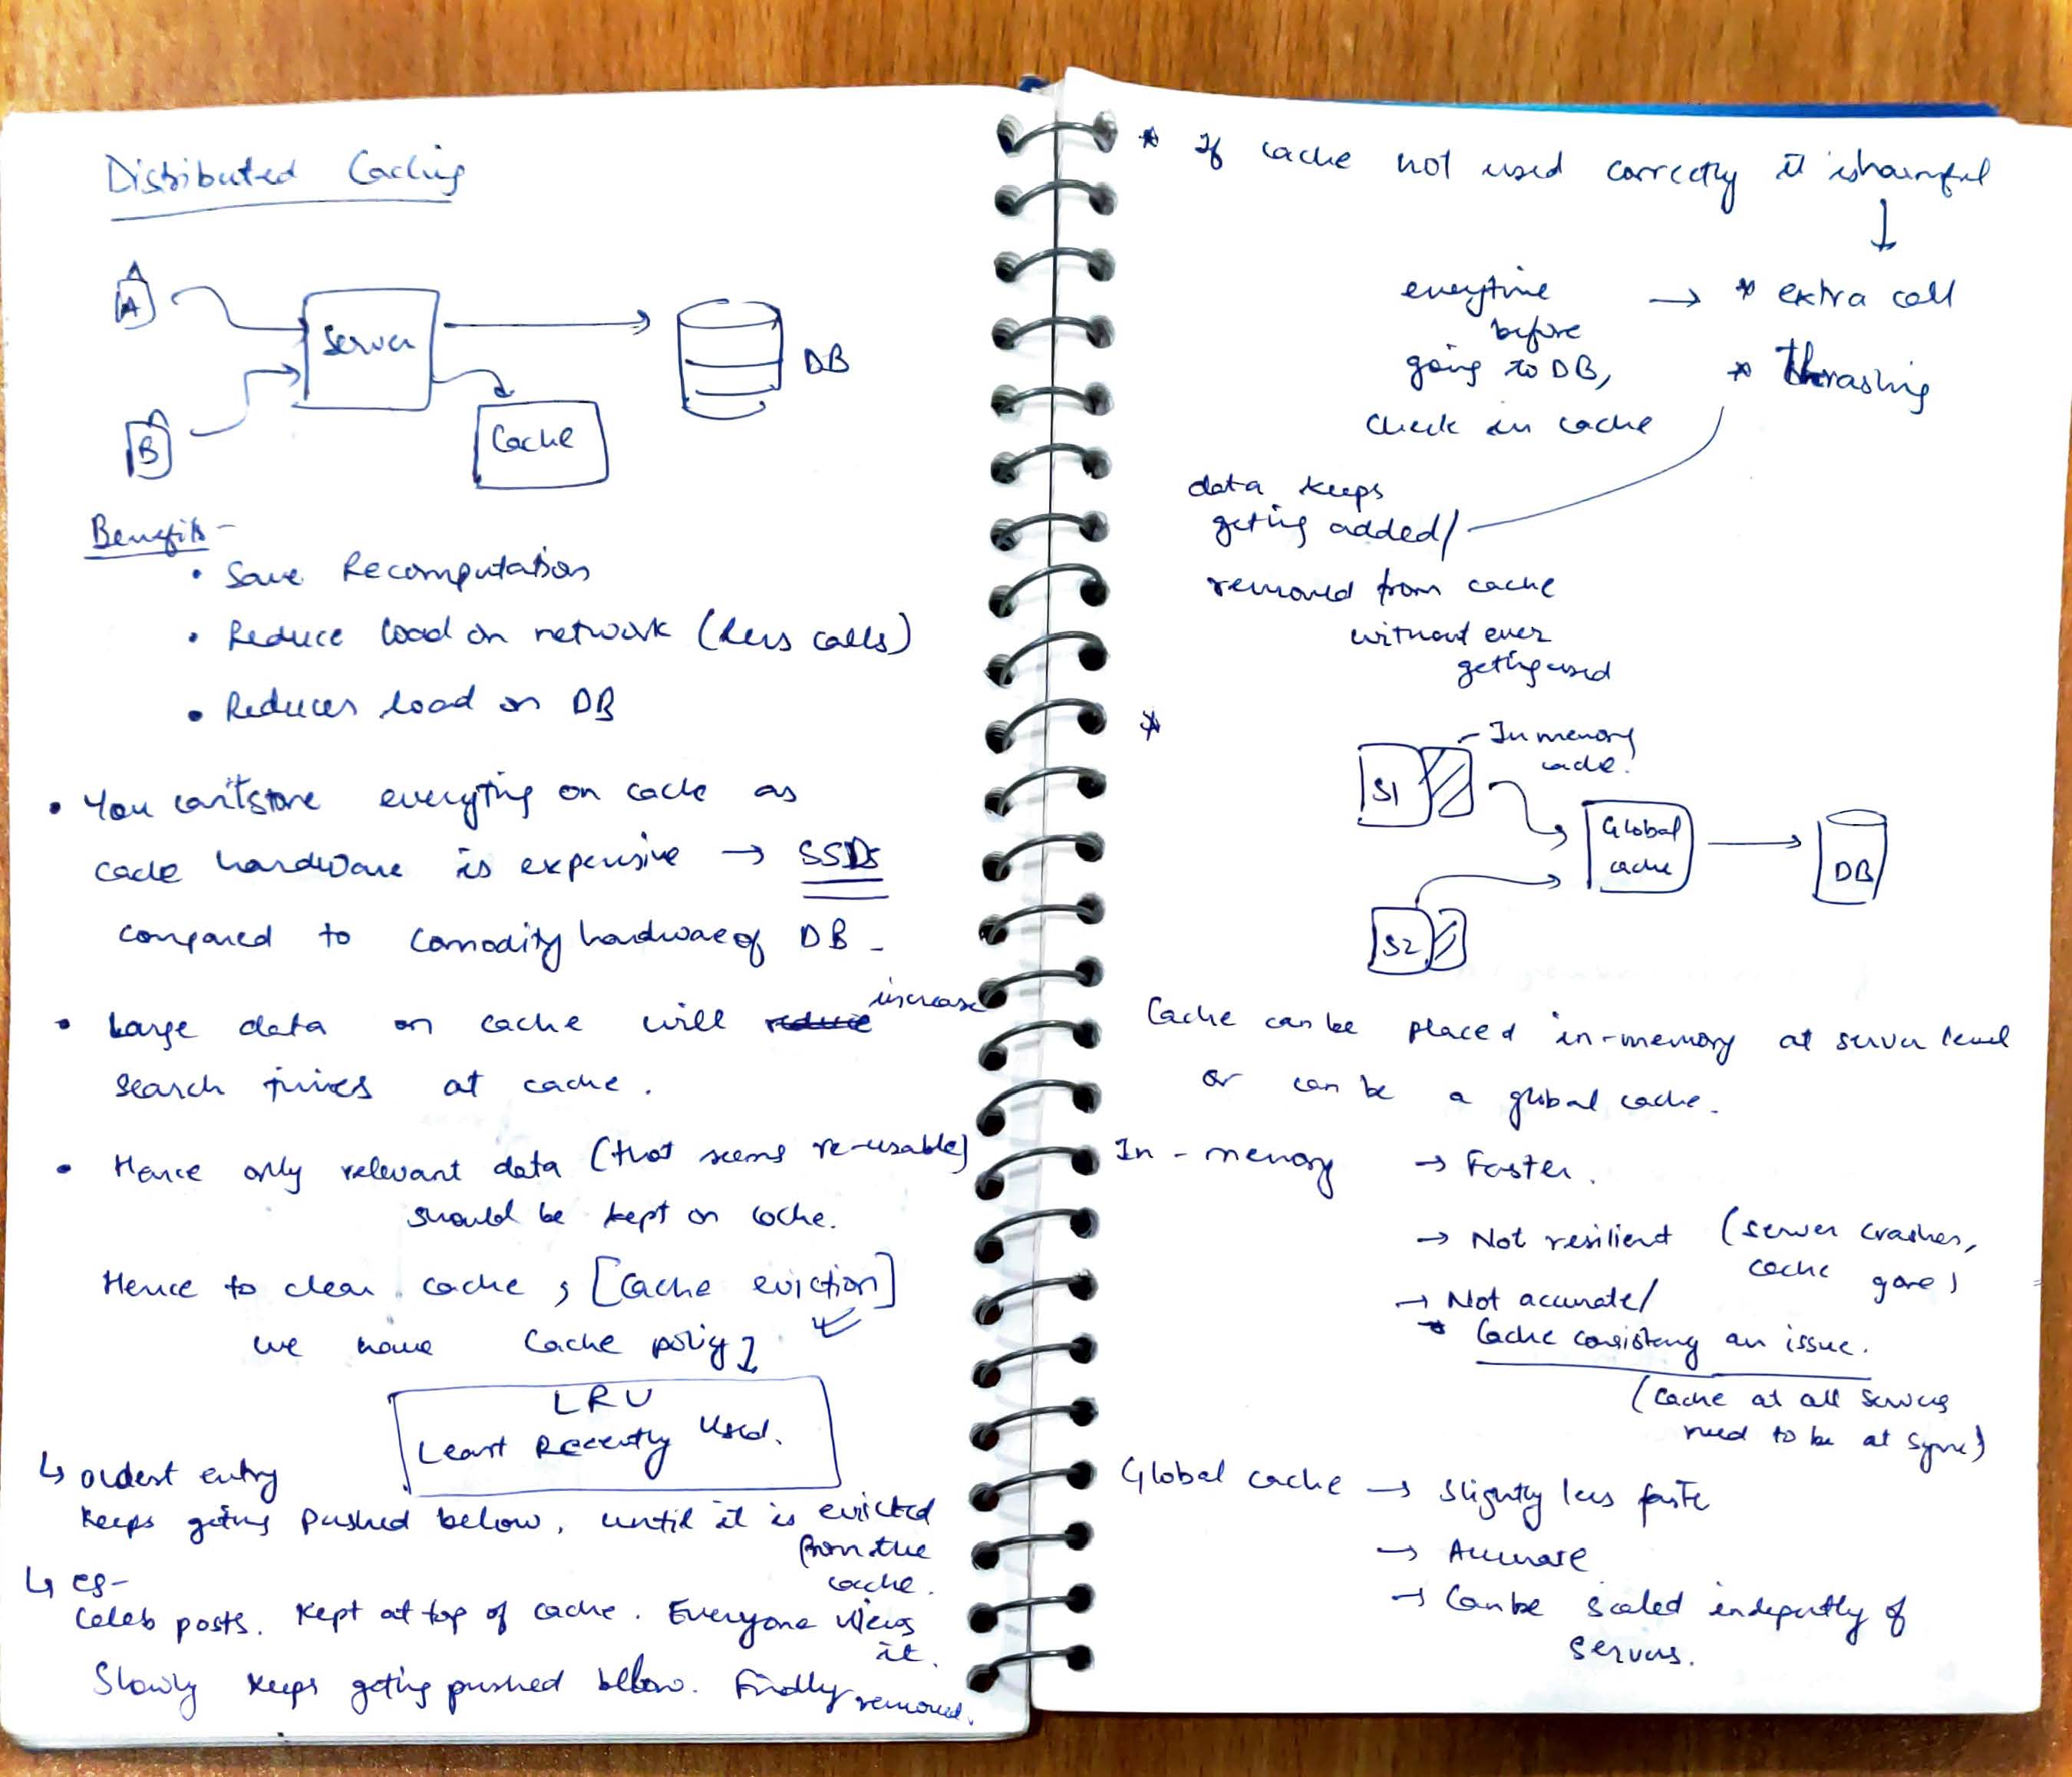 Distributed Caching
A
Server
DB
B
Cache
Benefits -
• Save Recomputation
• Reduce load on network (Less calls)
• Reduces load on DB
• You can't store everything on cache as
cache hardware is expensive → SSDs
compared to Comodity hardware of DB -
• Large data on cache will reduce increase
search times at cache.
• Hence only relevant data (that seems re-usable)
should be kept on cache.
Hence to clear cache, [Cache eviction]
we have Cache policy
LRU
Least Recently Used.
↳ oldest entry
keeps geting pushed below, until it is evicted
from the
cache.
↳ eg-
Celeb posts. Kept at top of cache. Everyone views
it.
Slowly keeps geting pushed below. Finally removed.
* If cache not used correctly it is harmful
↓
everytime → * extra call
before
going to DB, * Thrashing
check in cache
data keeps
geting added/
removed from cache
without ever
geting used
*
In memory
cache.
S1
Global
cache
DB
S2
Cache can be placed in-memory at server level
or can be a global cache.
In-memory → Faster.
→ Not resilient (server crashes,
cache gone)
→ Not accurate/
Cache consistency an issue.
(Cache at all servers
need to be at sync)
Global cache → Slightly less faste
→ Accurate
→ Can be scaled indepently of
servers.